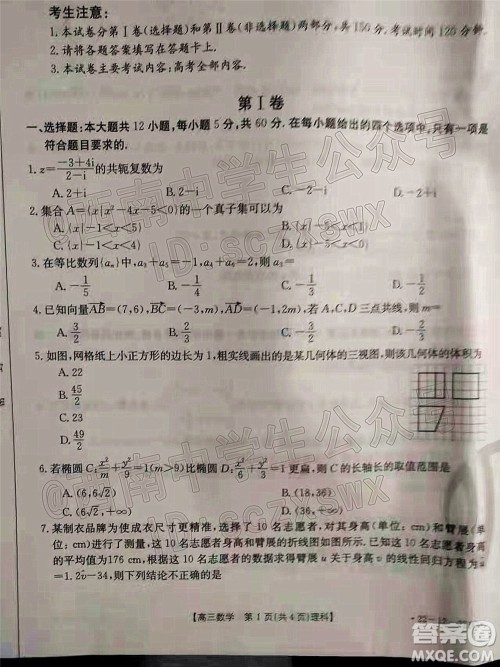 考生注意:
1.本试卷分第Ⅰ卷(选择题)和第Ⅱ卷(非选择题)两部分,共150分。考试时间120分钟。
2.请将各题答案填写在答题卡上。
3.本试卷主要考试内容:高考全部内容。
第Ⅰ卷
一、选择题:本大题共12小题,每小题5分,共60分.在每小题给出的四个选项中,只有一项是
符合题目要求的.
1.z=(-3+4i)/(2-i)的共轭复数为
A.2+i B.2-i C.-2-i D.-2+i
2.集合A={x|x²-4x-5<0}的一个真子集可以为
A.{x|-1<x<5} B.{x|-1<x≤5}
C.{x|-1<x<4} D.{x|-5<x<0}
3.在等比数列{aₙ}中,
A.-1/5 B.-1/4 C.-1/3 D.-1/2
4.已知向量AB=(7,6),BC=(-3,m),AD=(-1,2m),若A,C,D三点共线,则m=
A.3/2 B.2/3 C.-3/2 D.-2/3
5.如图,网格纸上小正方形的边长为1,粗实线画出的是某几何体的三视图,则该几何体的体积为
A.22
B.45/2
C.23
D.49/2
6.若椭圆C:x²/m+y²/9=1(m>9)比椭圆D:x²/6+y²/3=1更扁,则C的长轴长的取值范围是
A.(6,6√2) B.(18,36)
C.(6√2,+∞) D.(36,+∞)
7.某制衣品牌为使成衣尺寸更精准,选择了10名志愿者,对其身高(单位:cm)和臂展(单
位:cm)进行了测量,这10名志愿者身高和臂展的折线图如图所示.已知这10名志愿者身
高的平均值为176 cm,根据这10名志愿者的数据求得臂展u关于身高v的线性回归方程为
=1.2v-34,则下列结论正确的是
【高三数学 第1页(共4页)理科】
西南中学生公众号
ID:SCZXSWX
答案圈
MXQE.COM